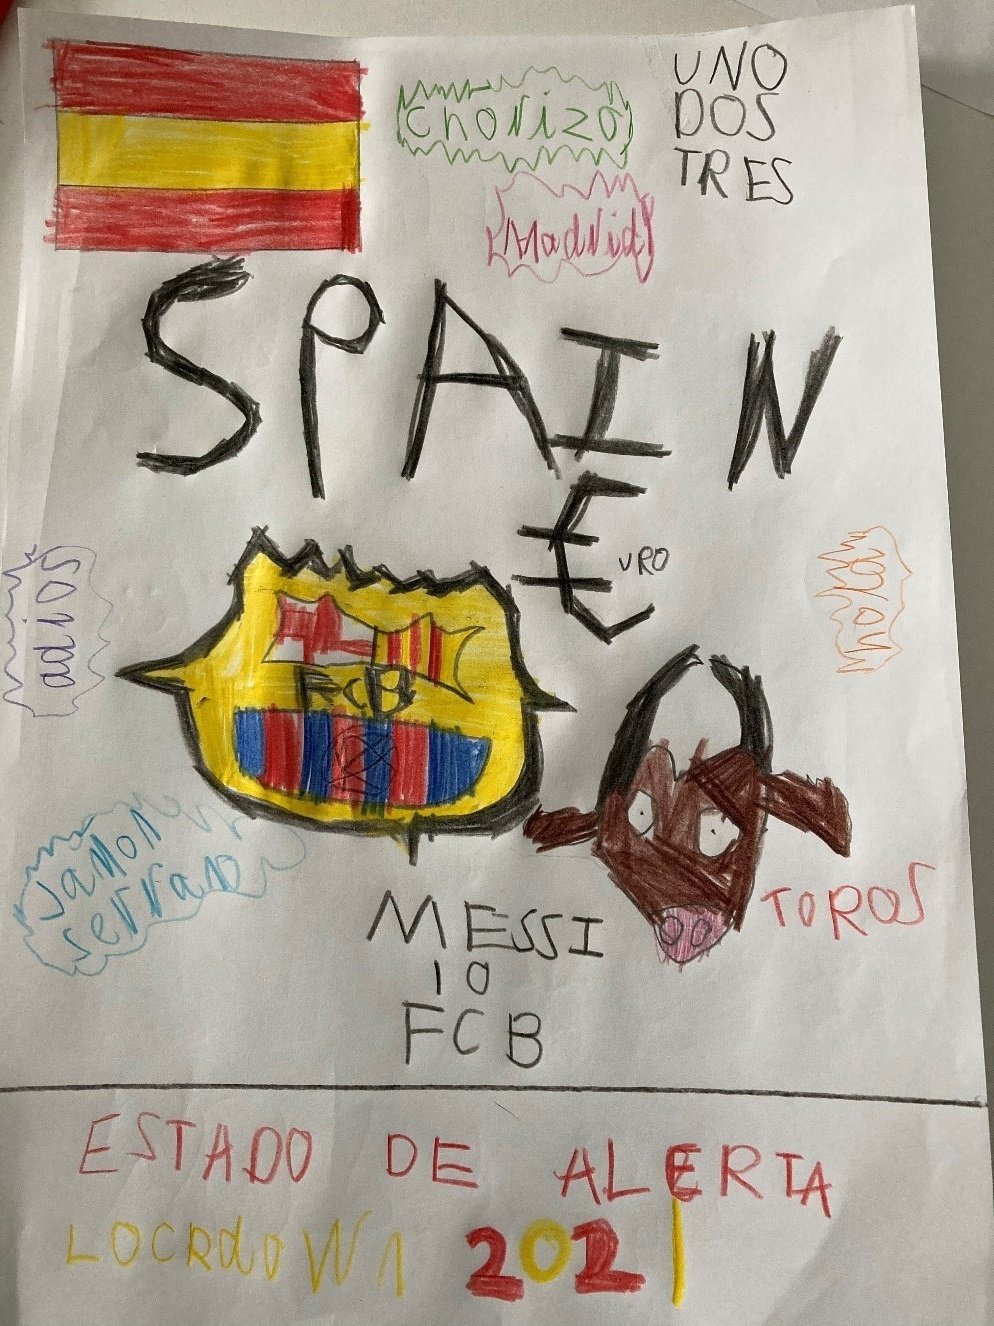 UNO
DOS
TRES
chorizo
Madrid
SPAIN
€URO
adios
FCB
TOROS
Jamon
serrano
MESSI
10
FCB
ESTADO DE ALERTA
LOCKdOWN 2021